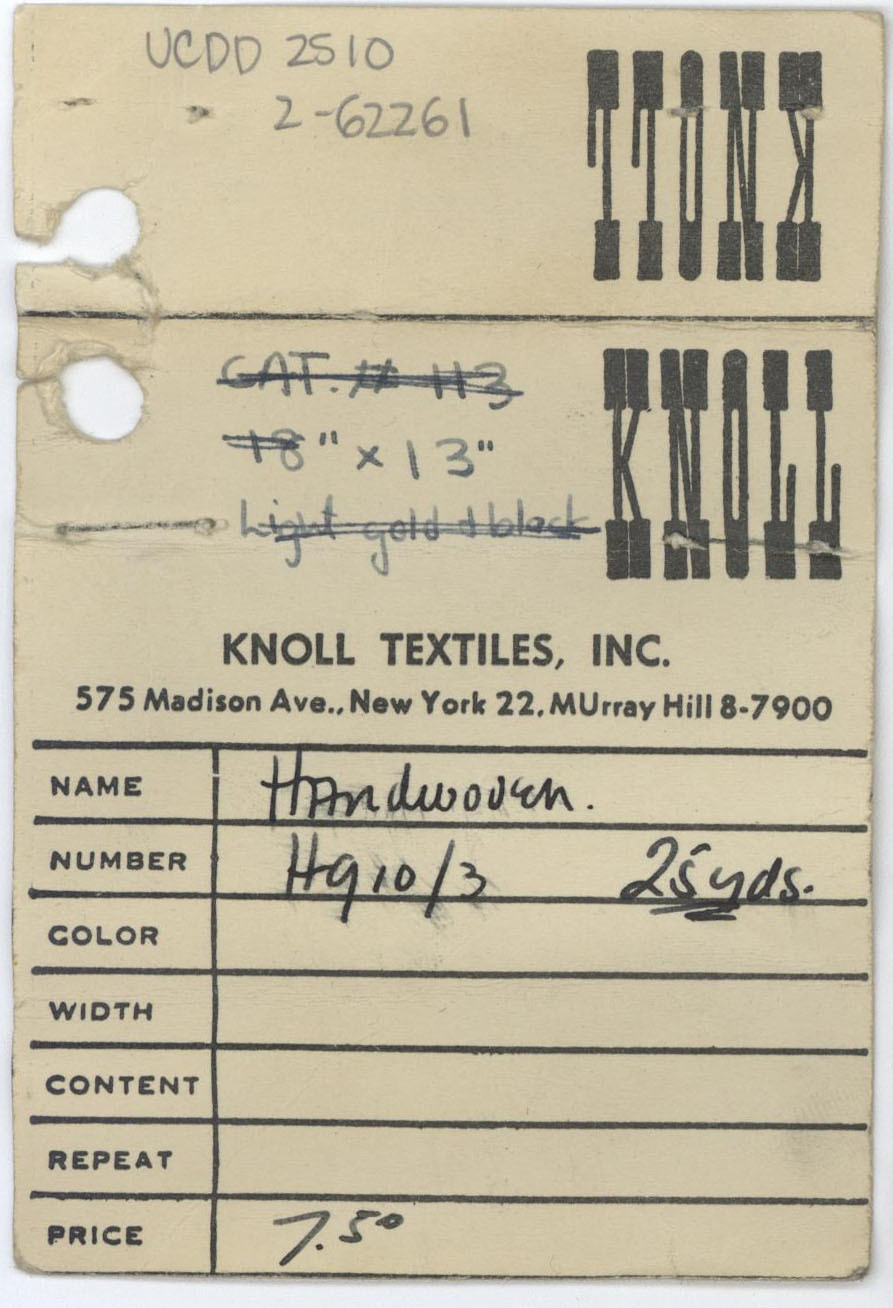 UCDD 2510
2-62261
KNOLL
CAT. # 113
18" x 13"
Light gold & black
KNOLL
KNOLL TEXTILES, INC.
575 Madison Ave., New York 22, MUrray Hill 8-7900
NAME Handwoven.
NUMBER H910/3 25 yds.
COLOR
WIDTH
CONTENT
REPEAT
PRICE 7.50